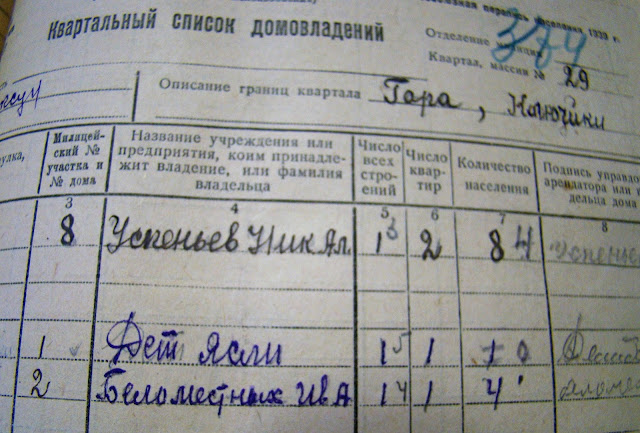 населения 1939 г.
Квартальный список домовладений
Отделение
374
Квартал, массив № 29
Описание границ квартала Гора, Ключики
Милицейский № участка и № дома
Название учреждения или предприятия, коим принадлежит владение, или фамилия владельца
Число всех строений
Число квартир
Количество населения
Подпись управдома арендатора или
3 4 5 6 7 8
8 Успеньев Ник Ал. 1 3 2 8 4 Успенье
1 Дет ясли 1 5 1 1 0
2 Беломестных Ив А 1 4 1 4